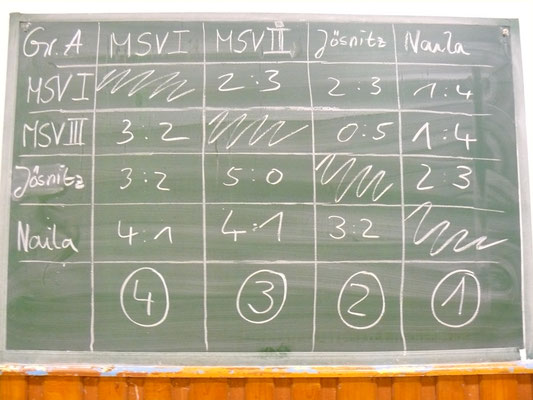 Gr. A MSV I MSV III Jösnitz Naila
MSV I 2:3 2:3 1:4
MSV III 3:2 0:5 1:4
Jösnitz 3:2 5:0 2:3
Naila 4:1 4:1 3:2
4 3 2 1